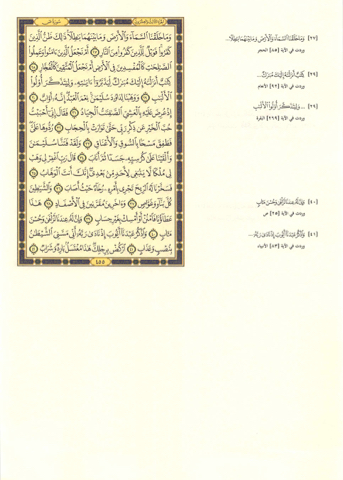 وَمَا خَلَقْنَا ٱلسَّمَآءَ وَٱلْأَرْضَ وَمَا بَيْنَهُمَا بَٰطِلًا ذَٰلِكَ ظَنُّ ٱلَّذِينَ
كَفَرُوا۟ فَوَيْلٌ لِّلَّذِينَ كَفَرُوا۟ مِنَ ٱلنَّارِ ٢٧ أَمْ نَجْعَلُ ٱلَّذِينَ ءَامَنُوا۟ وَعَمِلُوا۟
ٱلصَّٰلِحَٰتِ كَٱلْمُفْسِدِينَ فِى ٱلْأَرْضِ أَمْ نَجْعَلُ ٱلْمُتَّقِينَ كَٱلْفُجَّارِ ٢٨
كِتَٰبٌ أَنزَلْنَٰهُ إِلَيْكَ مُبَٰرَكٌ لِّيَدَّبَّرُوٓا۟ ءَايَٰتِهِۦ وَلِيَتَذَكَّرَ أُو۟لُوا۟
ٱلْأَلْبَٰبِ ٢٩ وَوَهَبْنَا لِدَاوُۥدَ سُلَيْمَٰنَ نِعْمَ ٱلْعَبْدُ إِنَّهُۥٓ أَوَّابٌ ٣٠
إِذْ عُرِضَ عَلَيْهِ بِٱلْعَشِىِّ ٱلصَّٰفِنَٰتُ ٱلْجِيَادُ ٣١ فَقَالَ إِنِّىٓ أَحْبَبْتُ
حُبَّ ٱلْخَيْرِ عَن ذِكْرِ رَبِّى حَتَّىٰ تَوَارَتْ بِٱلْحِجَابِ ٣٢ رُدُّوهَا عَلَىَّ
فَطَفِقَ مَسْحًۢا بِٱلسُّوقِ وَٱلْأَعْنَاقِ ٣٣ وَلَقَدْ فَتَنَّا سُلَيْمَٰنَ
وَأَلْقَيْنَا عَلَىٰ كُرْسِيِّهِۦ جَسَدًا ثُمَّ أَنَابَ ٣٤ قَالَ رَبِّ ٱغْفِرْ لِى وَهَبْ
لِى مُلْكًا لَّا يَنۢبَغِى لِأَحَدٍ مِّنۢ بَعْدِىٓ إِنَّكَ أَنتَ ٱلْوَهَّابُ ٣٥
فَسَخَّرْنَا لَهُ ٱلرِّيحَ تَجْرِى بِأَمْرِهِۦ رُخَآءً حَيْثُ أَصَابَ ٣٦ وَٱلشَّيَٰطِينَ
كُلَّ بَنَّآءٍ وَغَوَّاصٍ ٣٧ وَءَاخَرِينَ مُقَرَّنِينَ فِى ٱلْأَصْفَادِ ٣٨ هَٰذَا
عَطَآؤُنَا فَٱمْنُنْ أَوْ أَمْسِكْ بِغَيْرِ حِسَابٍ ٣٩ وَإِنَّ لَهُۥ عِندَنَا لَزُلْفَىٰ وَحُسْنَ
مَـَٔابٍ ٤٠ وَٱذْكُرْ عَبْدَنَآ أَيُّوبَ إِذْ نَادَىٰ رَبَّهُۥٓ أَنِّى مَسَّنِىَ ٱلشَّيْطَٰنُ
بِنُصْبٍ وَعَذَابٍ ٤١ ٱرْكُضْ بِرِجْلِكَ هَٰذَا مُغْتَسَلٌۢ بَارِدٌ وَشَرَابٌ ٤٢
٤٥٥
[٢٧] وَمَا خَلَقْنَا ٱلسَّمَآءَ وَٱلْأَرْضَ وَمَا بَيْنَهُمَا بَٰطِلًا...
وردت في الآية [٨٥] الحجر
[٢٩] كِتَٰبٌ أَنزَلْنَٰهُ إِلَيْكَ مُبَٰرَكٌ...
وردت في الآية [٩٢] الأنعام
[٢٩] ... وَلِيَتَذَكَّرَ أُو۟لُوا۟ ٱلْأَلْبَٰبِ
وردت في الآية [٢٦٩] البقرة
[٤٠] وَإِنَّ لَهُۥ عِندَنَا لَزُلْفَىٰ وَحُسْنَ مَـَٔابٍ
وردت في الآية [٢٥] ص
[٤١] وَٱذْكُرْ عَبْدَنَآ أَيُّوبَ إِذْ نَادَىٰ رَبَّهُۥٓ...
وردت في الآية [٨٣] الأنبياء